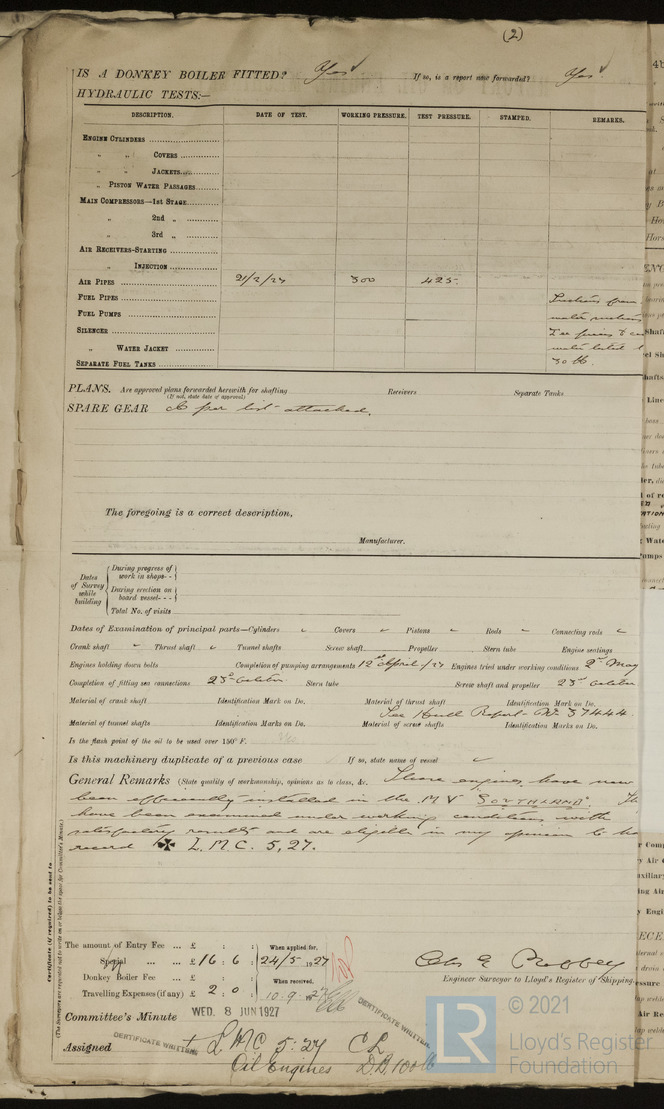 (2)
IS A DONKEY BOILER FITTED? Yes If so, is a report now forwarded? Yes
HYDRAULIC TESTS:—
DESCRIPTION. DATE OF TEST. WORKING PRESSURE. TEST PRESSURE. STAMPED. REMARKS.
ENGINE CYLINDERS
" " COVERS
" " JACKETS
" PISTON WATER PASSAGES
MAIN COMPRESSORS—1st STAGE
" 2nd "
" 3rd "
AIR RECEIVERS-STARTING
" INJECTION
AIR PIPES 21/2/27 300 425
FUEL PIPES
FUEL PUMPS water
SILENCER
" WATER JACKET water tested
SEPARATE FUEL TANKS 30 lb.
PLANS. Are approved plans forwarded herewith for shafting Receivers Separate Tanks
(If not, state date of approval)
SPARE GEAR As per list attached.
The foregoing is a correct description,
Manufacturer.
Dates of Survey while building
During progress of work in shops - -
During erection on board vessel - - -
Total No. of visits
Dates of Examination of principal parts—Cylinders Covers Pistons Rods Connecting rods
Crank shaft Thrust shaft Tunnel shafts Screw shaft Propeller Stern tube Engine seatings
Engines holding down bolts Completion of pumping arrangements 12th April/27 Engines tried under working conditions 2nd May
Completion of fitting sea connections 25th October Stern tube Screw shaft and propeller 25th October
Material of crank shaft Identification Mark on Do. Material of thrust shaft Identification Mark on Do.
See Hull Report No 37444
Material of tunnel shafts Identification Marks on Do. Material of screw shafts Identification Marks on Do.
Is the flash point of the oil to be used over 150° F. Yes
Is this machinery duplicate of a previous case If so, state name of vessel
General Remarks (State quality of workmanship, opinions as to class, &c. These engines have now
been efficiently installed in the M V "SOUTHLAND".
have been examined under working conditions with
satisfactory results and are eligible in my opinion to
record ✠ L.M.C. 5,27.
Certificate (if required) to be sent to
(The Surveyors are requested not to write on or below the space for Committee's Minute.)
The amount of Entry Fee ... £ : : When applied for,
Special ... ... £ 16 : 6 24/5 1927
Donkey Boiler Fee ... £ : : When received,
Travelling Expenses (if any) £ 2 : 0 10.9.1927
Engineer Surveyor to Lloyd's Register of Shipping.
Committee's Minute WED. 8 JUN 1927
CERTIFICATE WRITTEN
CERTIFICATE WRITTEN
Assigned + LMC 5.27 CL
Oil Engines DB 100 lb
LR
© 2021
Lloyd's Register
Foundation